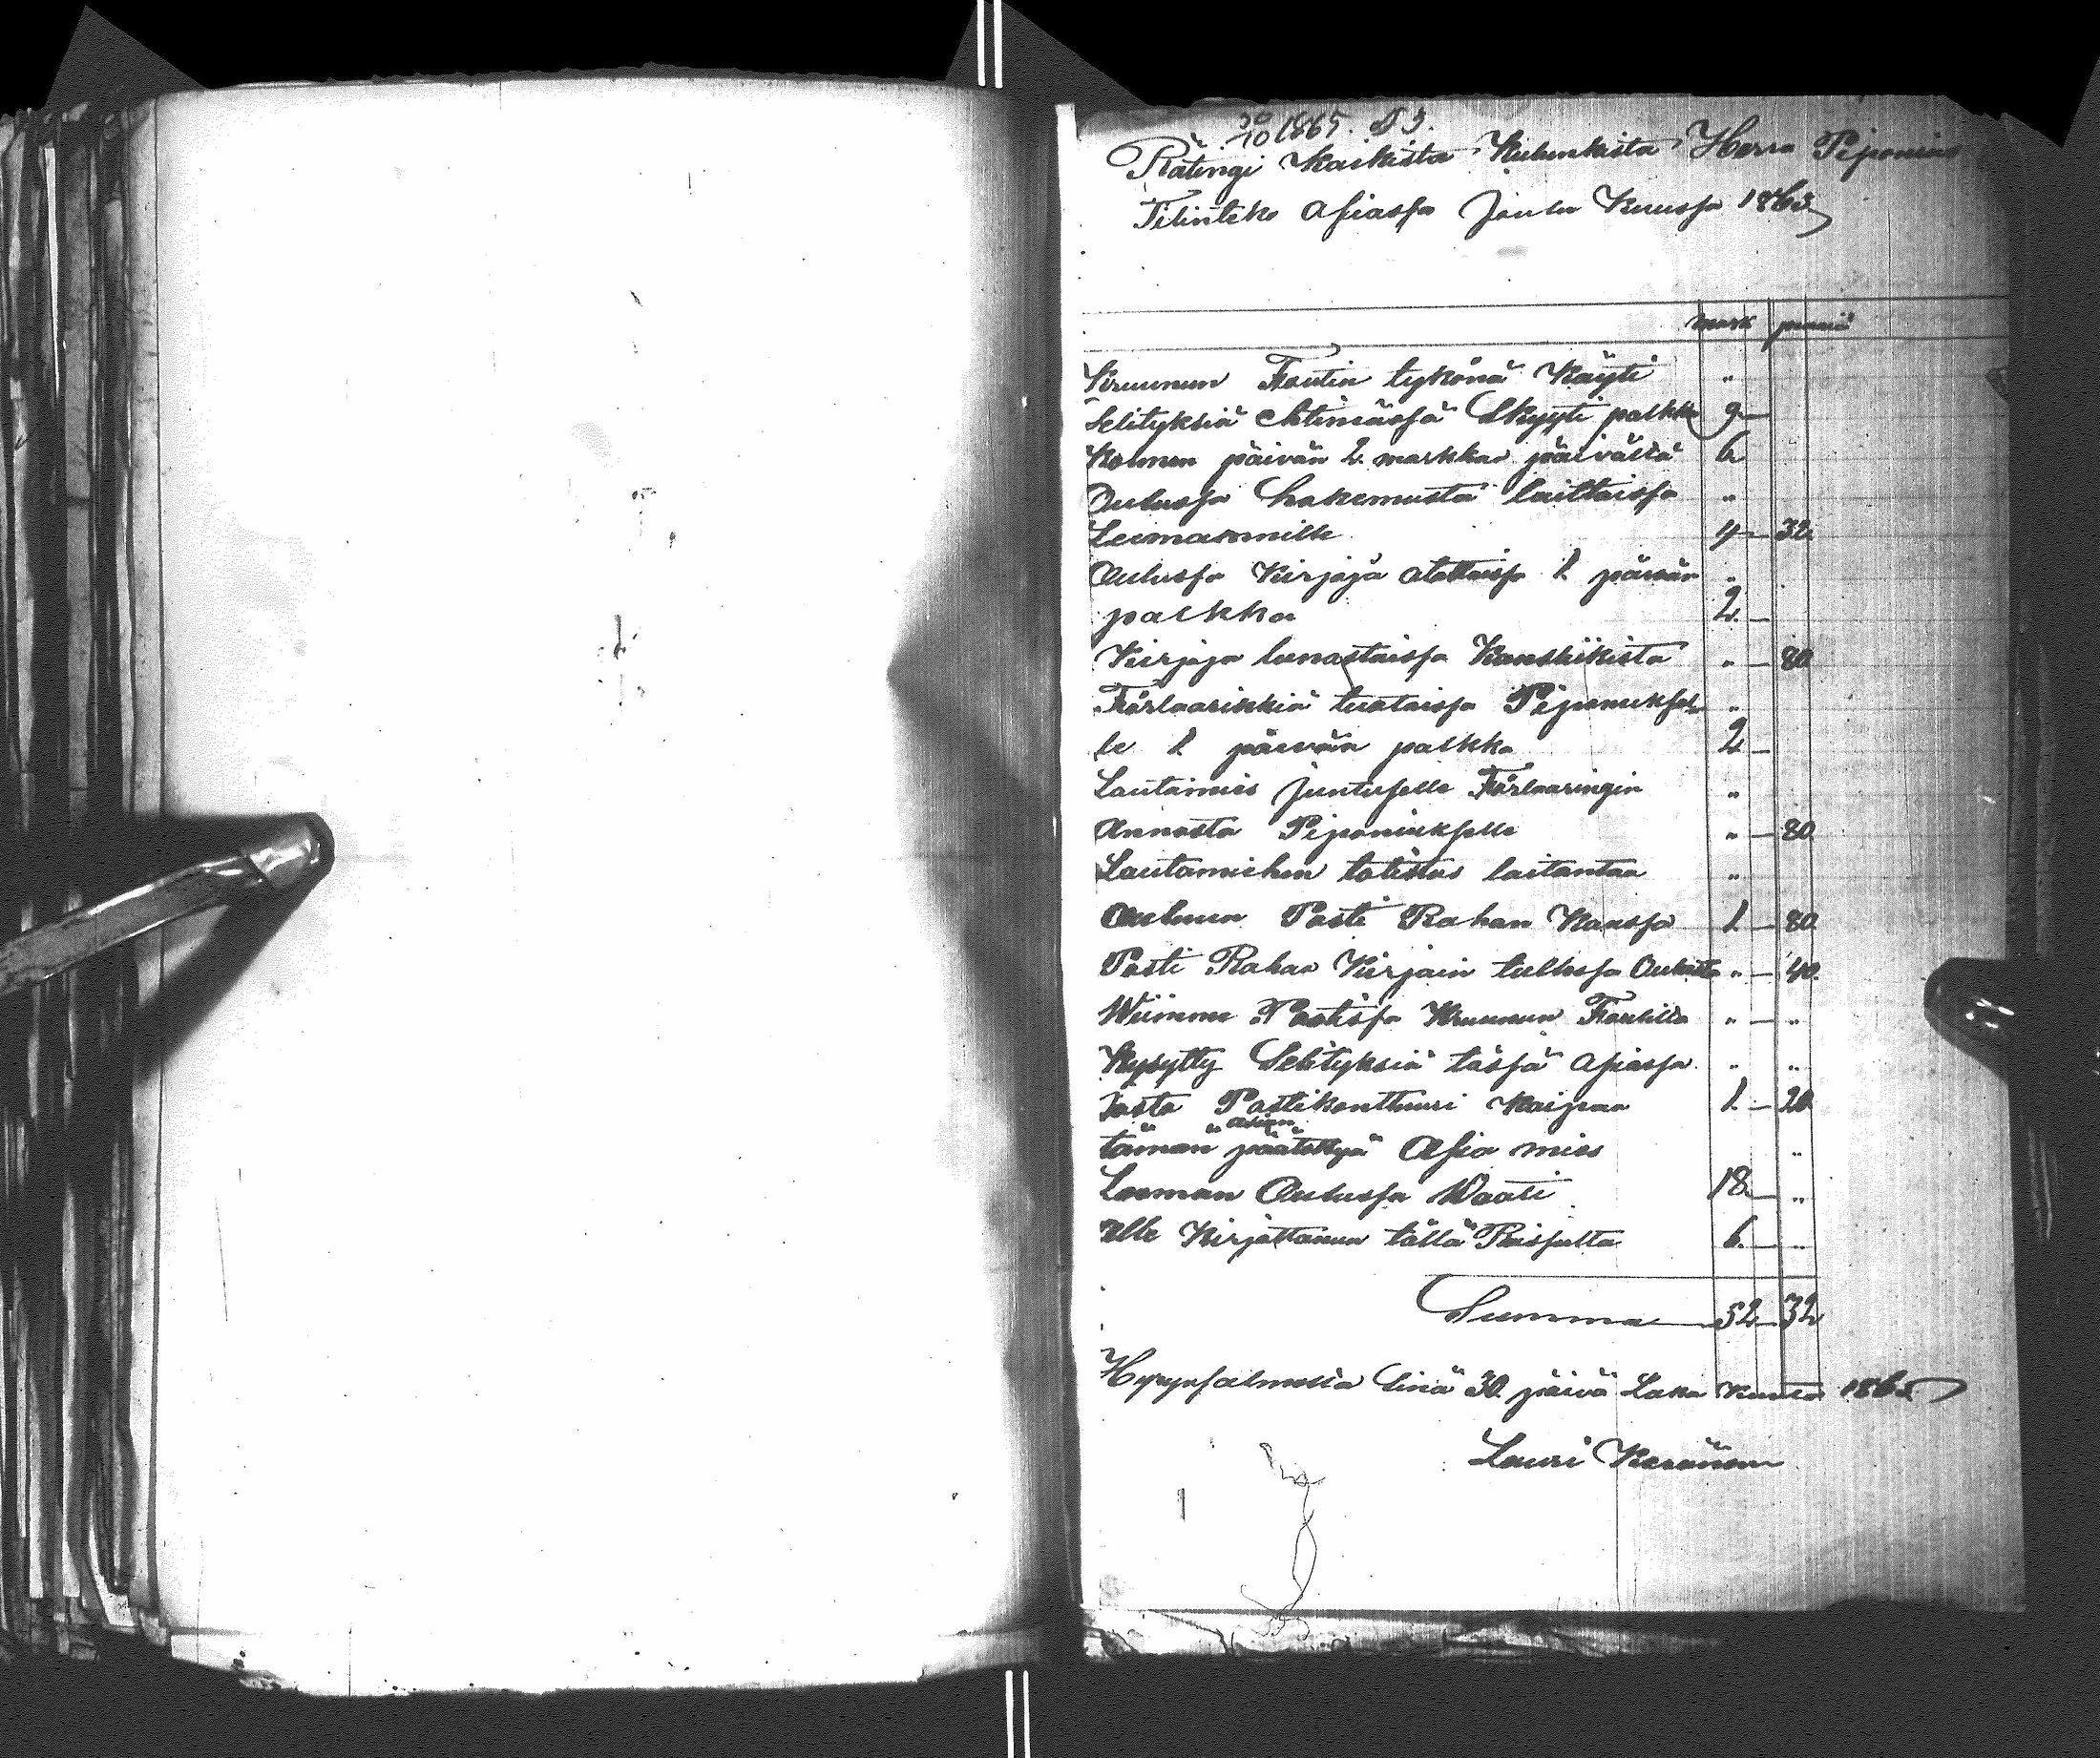 30/10 1865. § 3.
Rätingi Kaikista Kulunkista Herra Piponius
Tilinteko Asiassa Joulu Kuussa 1863
mark penniä
Kruunun Foutin tykönä Käyti "
Selityksiä ehtimässä Skyyti palkka 9 —
Kolmen päivän 2. markkaa päivältä 6
Oulussa hakemusta laittaissa "
Leimasimille 4 — 32.
Oulussa Kirjoja otattaissa 1. päivän "
palkka 2. —
Kirjoja lunastaissa Kanslikista " — 80
Förlaarikkia tuotaissa Piponiuksel "
le 1. päivän palkka 2 —
Lautamies Juntuselle Förlaaringin "
Annosta Piponiukselle " — 80.
Lautamiehen totistus laitantaa "
Ouluun Posti Rahan Kanssa 1. — 80.
Posti Rahaa Kirjain tullessa Oulusta " — 40.
Wiimme Postissa Kruunun Foutilla " — "
Kysytty Selityksiä tässä Asiassa. " "
Josta Postikonttuuri Kaipaa 1. — 20.
tämän asian päätettyä Asia mies "
Looman Oulussa Waati 18 — "
Alle Kirjottanun tällä Reissulta 6. — "
Summa 52 — 32
Hyrynsalmella Sinä 30. päivä Loka Kuuta 1865
Lauri Keränen